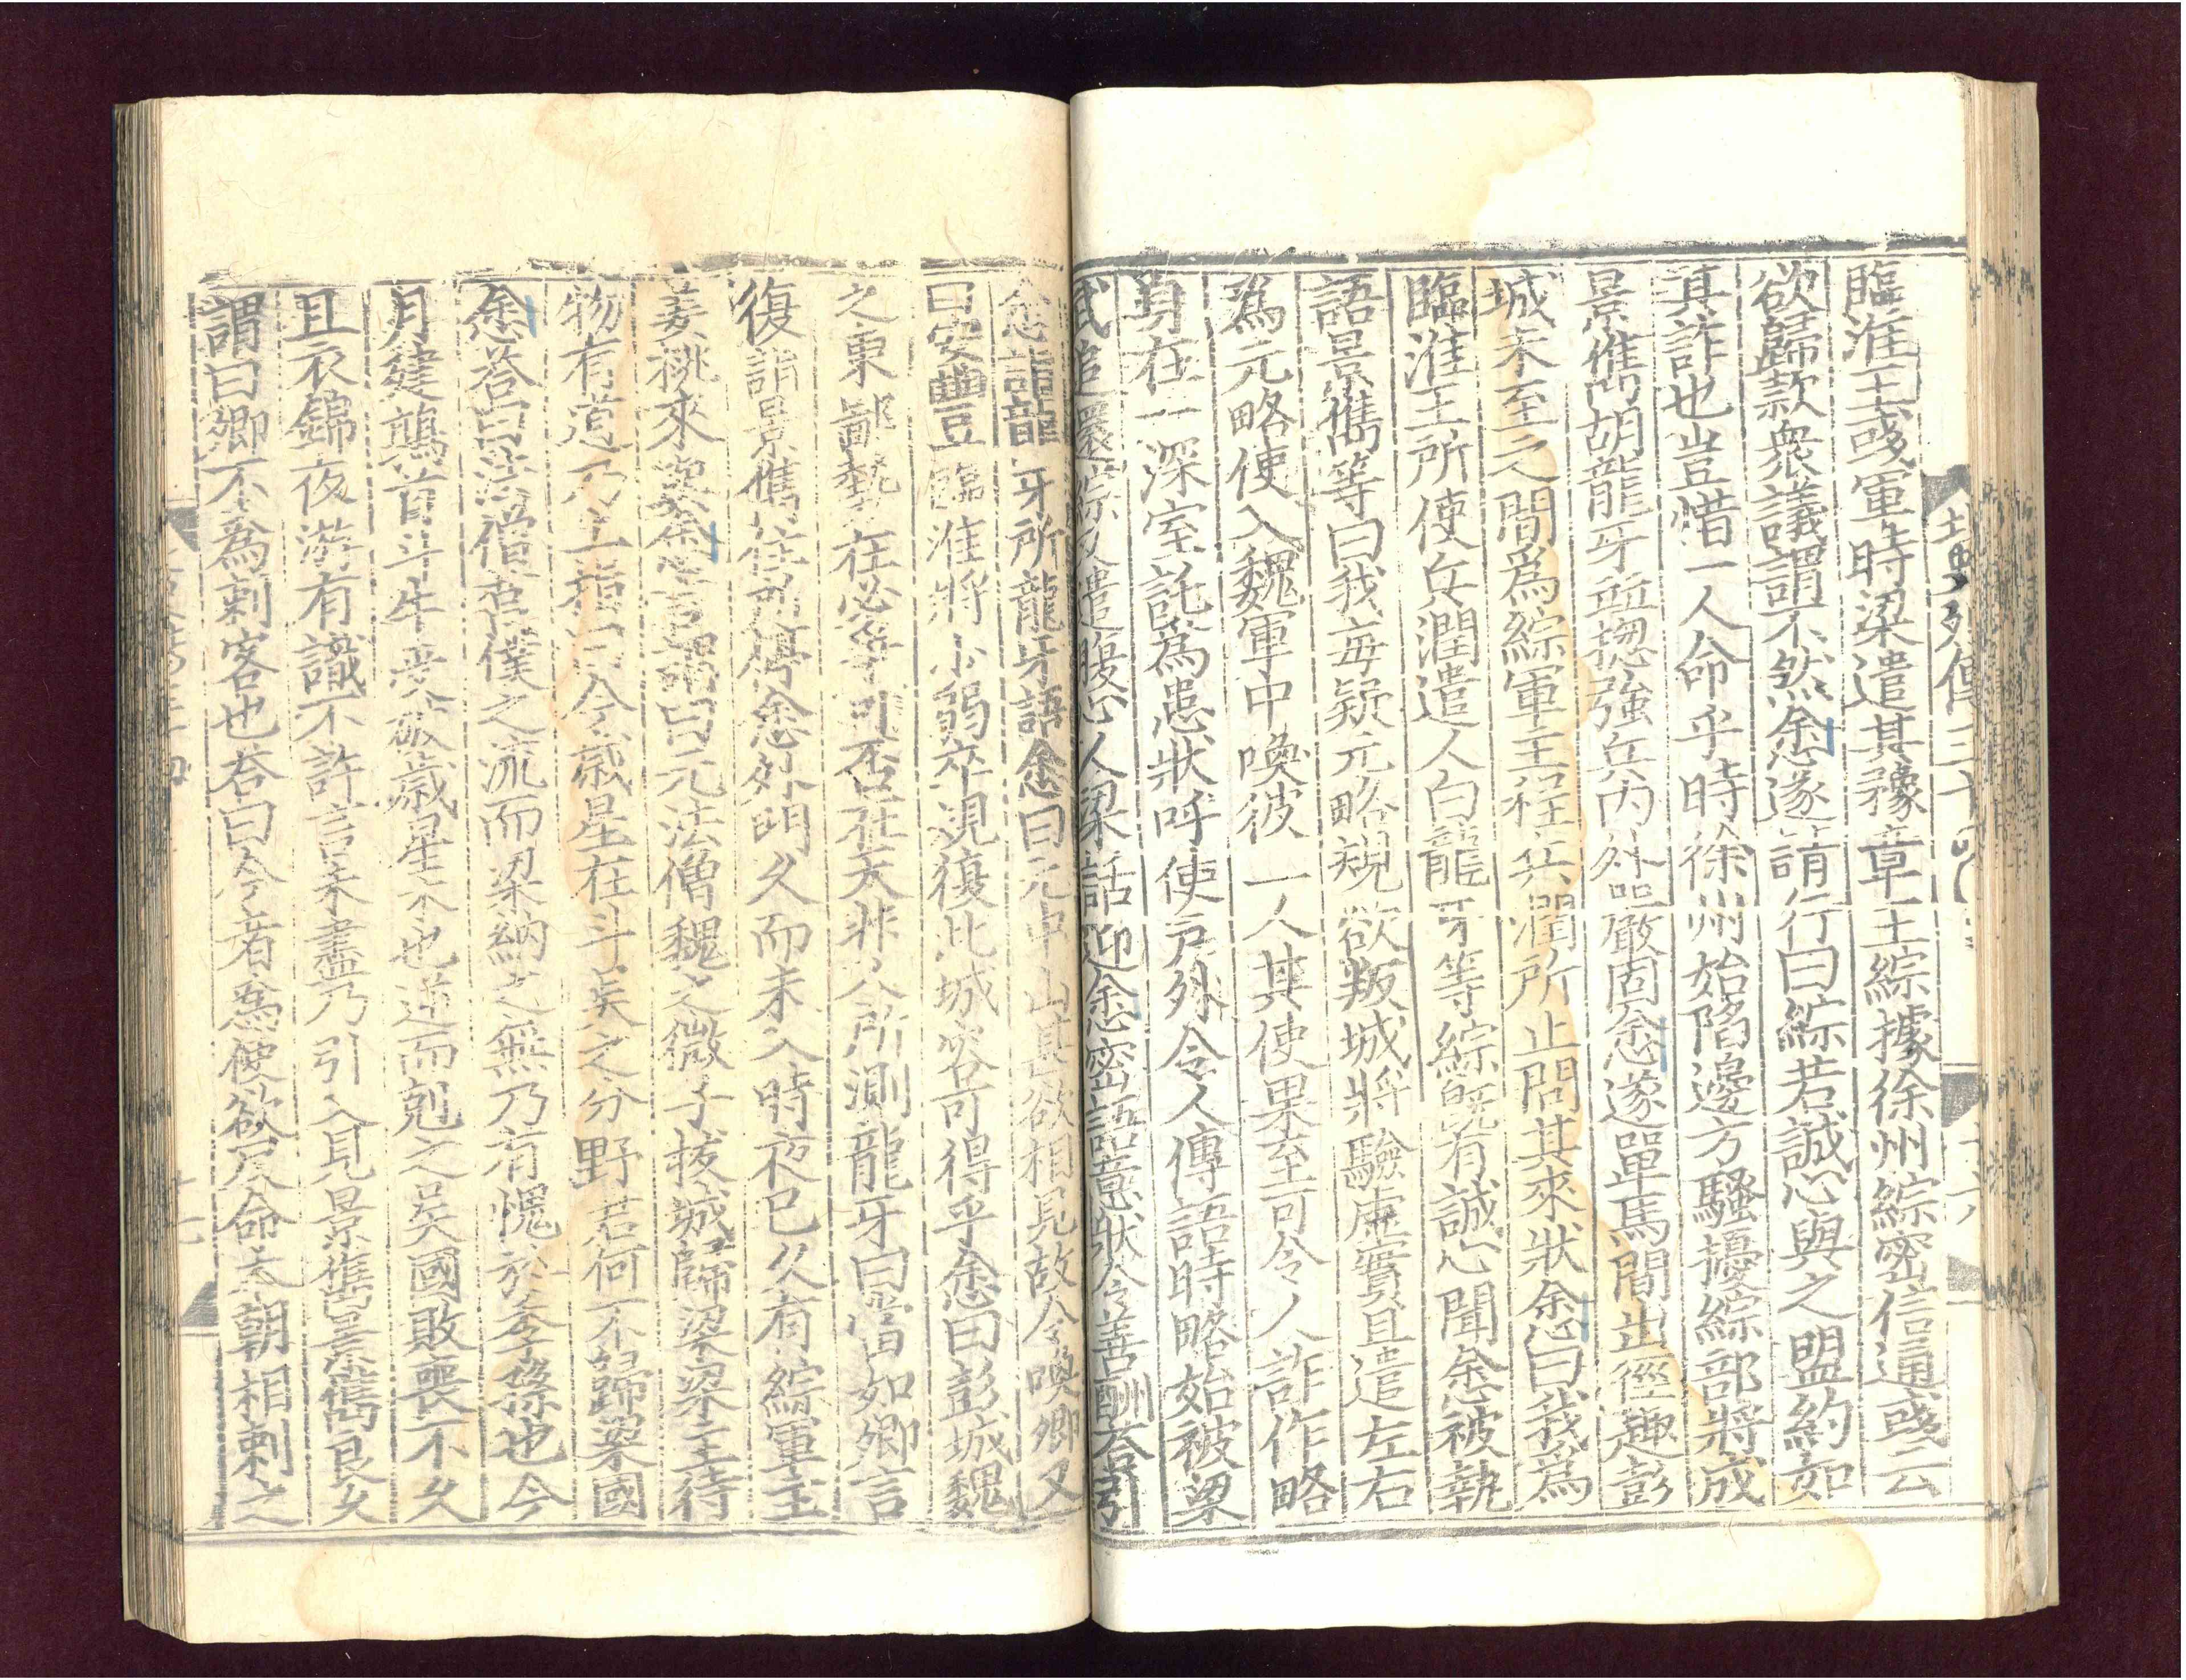 臨淮王彧軍時梁遣其豫章王綜據徐州綜密信通彧云
欲歸款衆議謂不然悆遂請行曰綜若誠心與之盟約如
其詐也豈惜一人命乎時徐州始陷邊方騷擾綜部將成
景儁胡龍牙並揔強兵內外嚴固悆遂單馬間出徑趣彭
城未至之間爲綜軍主程兵潤所止問其來狀悆曰我爲
臨淮王所使兵潤遣人白龍牙等綜旣有誠心聞悆被執
語景儁等曰我每疑元略規欲叛城將驗虛實且遣左右
爲元略使入魏軍中喚彼一人其使果至可令人詐作略
身在一深室託爲患狀呼使戶外令人傳語時略始被梁
武追還綜又遣腹心人梁話迎悆密語意狀令善酬荅引
悆詣龍牙所龍牙語悆曰元中山甚欲相見故令喚卿又
曰安豐臨淮將少弱卒規復此城容可得乎悆曰彭城魏
之東鄙勢在必爭可否在天非人所測龍牙曰當如卿言
復詣景儁住所停悆外門久而未入時夜已久有綜軍主
姜桃來與悆言謂曰元法僧魏之微子拔城歸梁梁主待
物有道乃上指曰今歲星在斗吳之分野君何不歸梁國
悆荅曰法僧莒僕之流而梁納之無乃有愧於季孫也今
月建鶉首斗牛受破歲星木也逆而剋之吳國敗喪不久
且衣錦夜游有識不許言未盡乃引入見景儁景儁良久
謂曰卿不爲刺客也荅曰今者爲使欲反命本朝相刺之